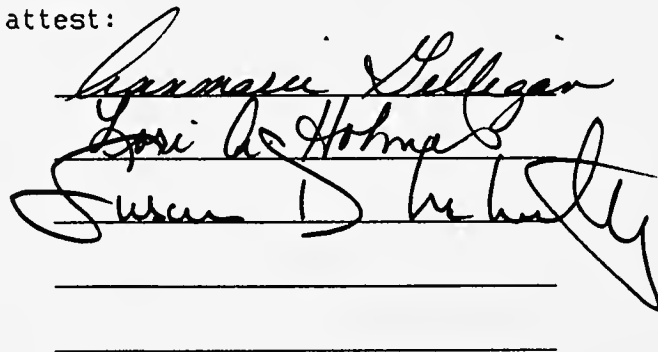 attest:
Annmarie Gilligan
Lori A. Holmes
Susan D.